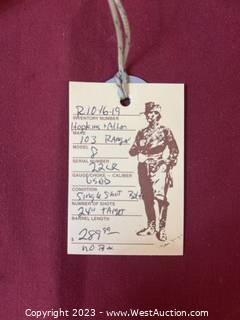 R1016-19
INVENTORY NUMBER
Hopkins + Allen
MAKE
103
MODEL
8
SERIAL NUMBER
22LR
GAUGE/CHOKE - CALIBER
USED
CONDITION
Single Shot
NUMBER OF SHOTS
24"
BARREL LENGTH
$ 289.00
NO
Copyright 2023 - www.WestAuction.com